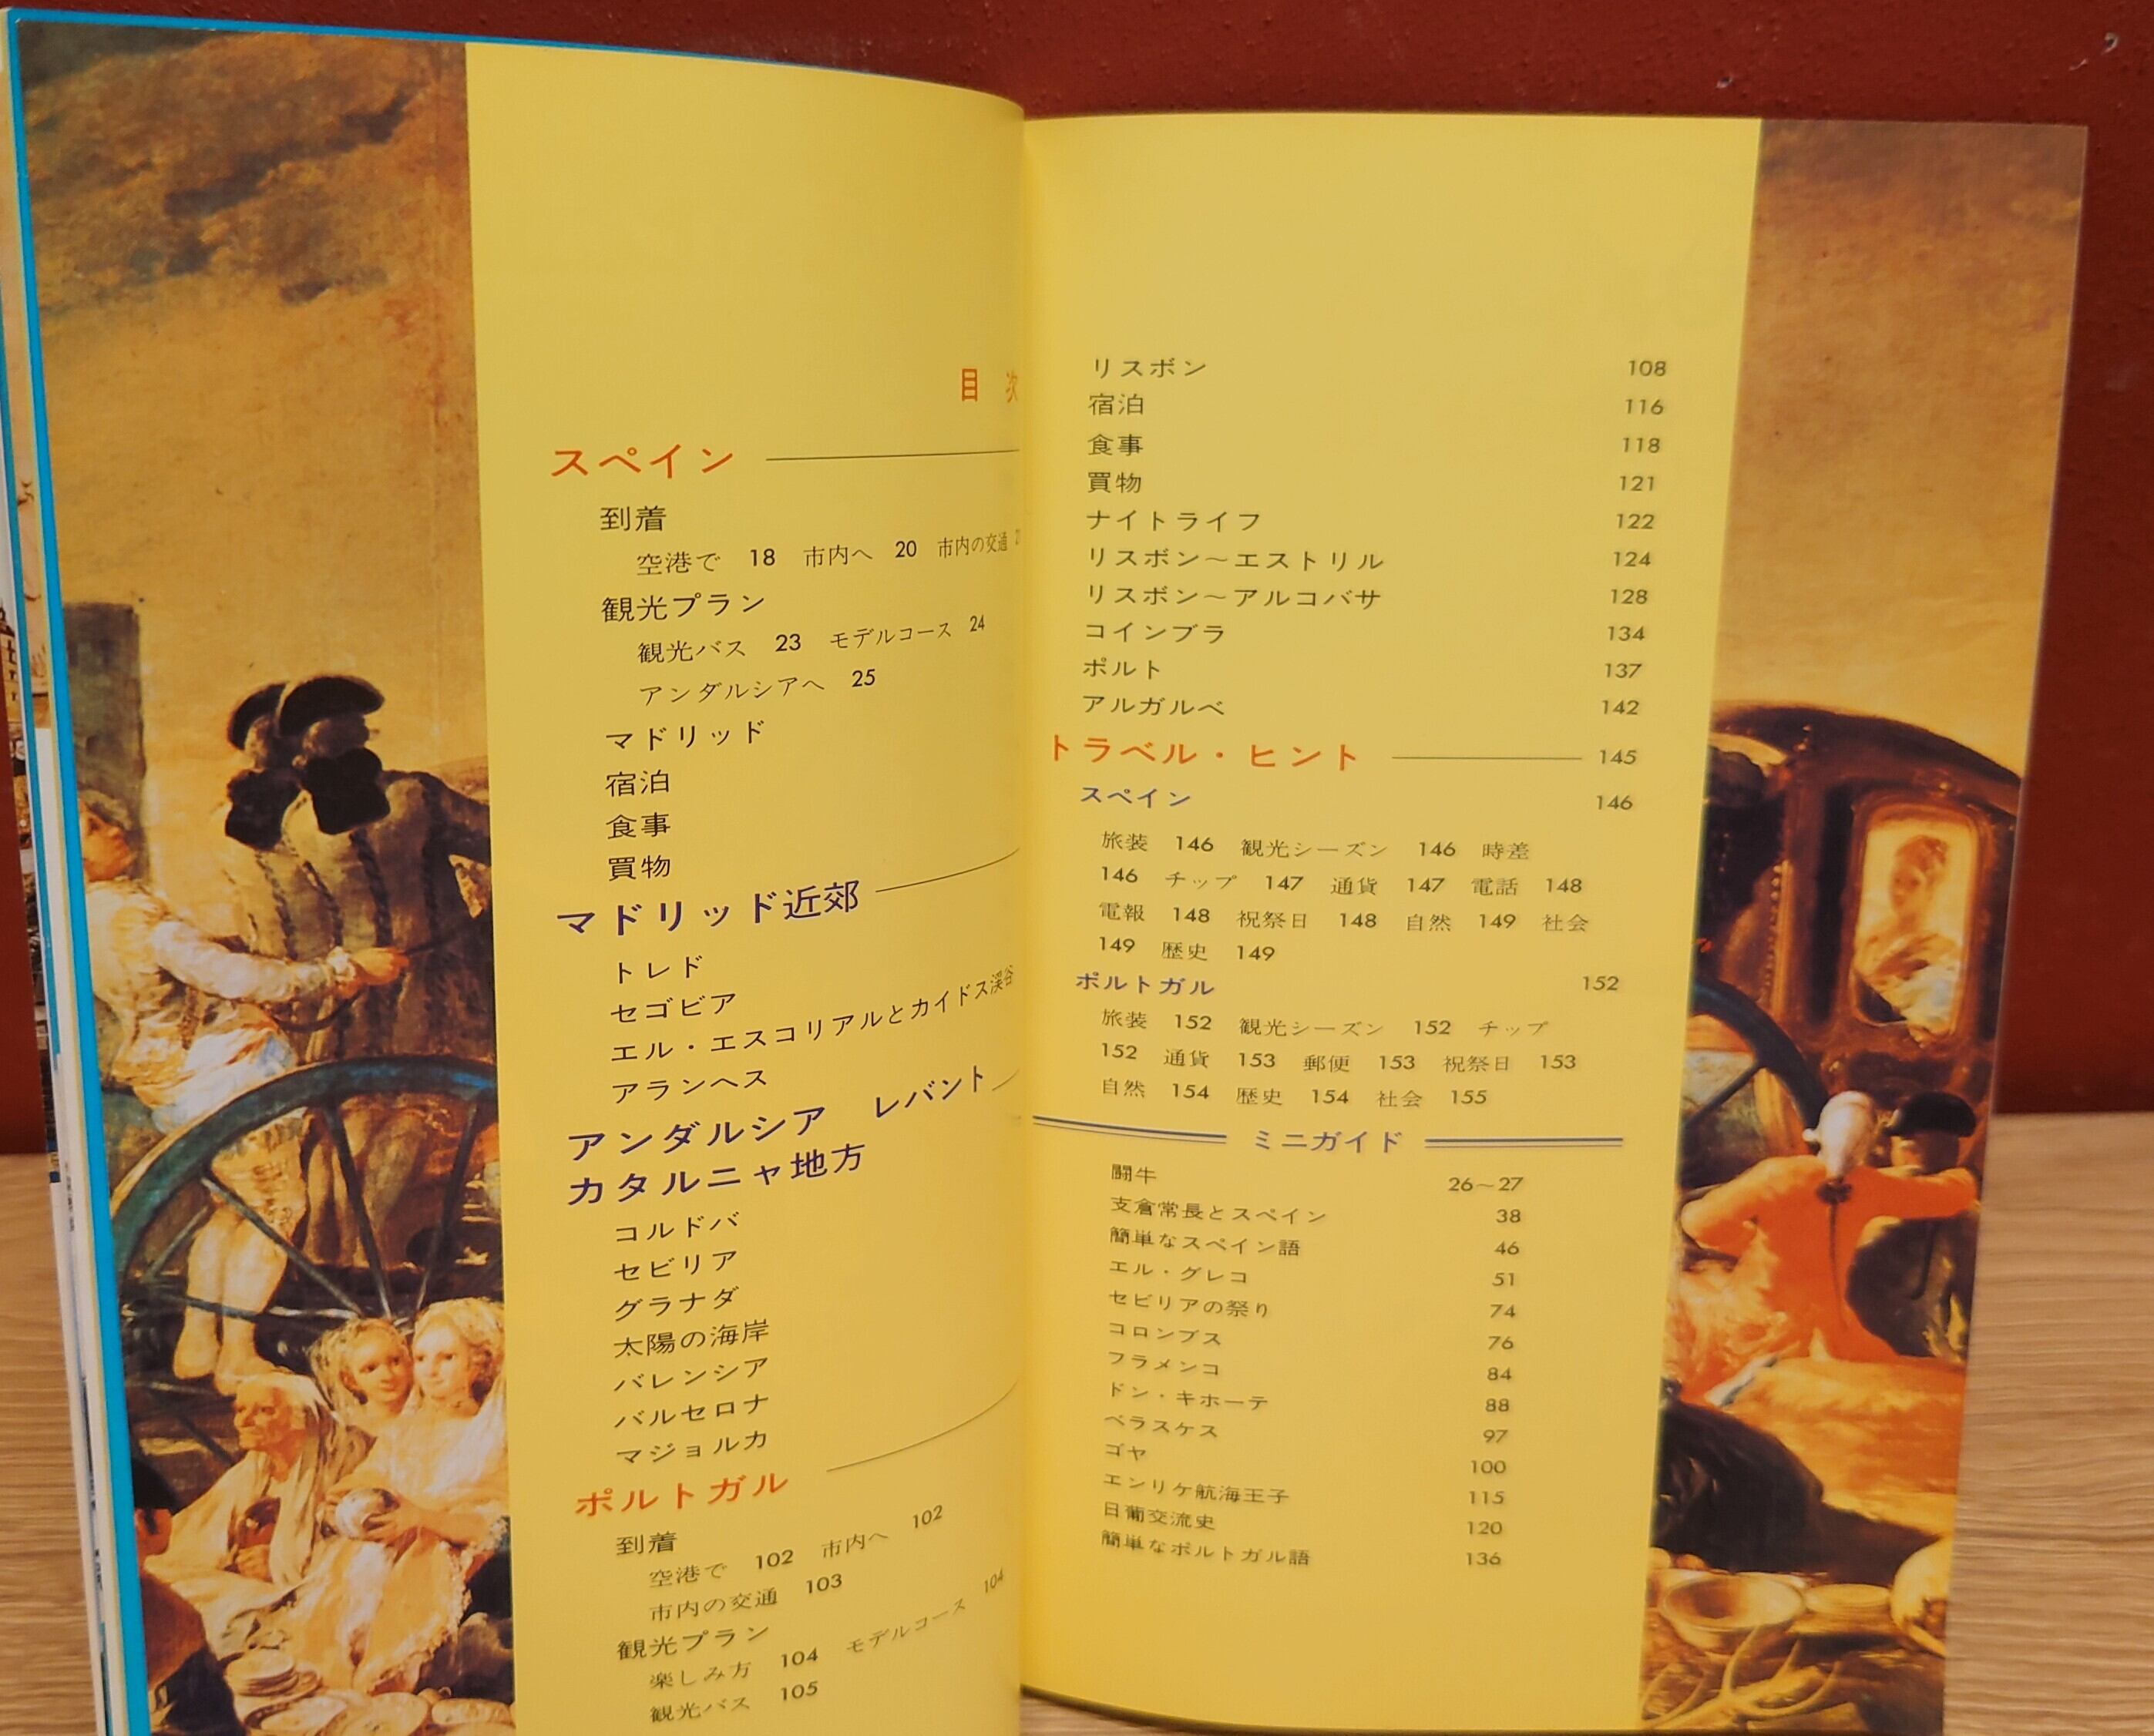 目 次
スペイン
到着
空港で 18 市内へ 20 市内の交通
観光プラン
観光バス 23 モデルコース 24
アンダルシアへ 25
マドリッド
宿泊
食事
買物
マドリッド近郊
トレド
セゴビア
エル・エスコリアルとカイドス渓谷
アランヘス
アンダルシア レバント
カタルニャ地方
コルドバ
セビリア
グラナダ
太陽の海岸
バレンシア
バルセロナ
マジョルカ
ポルトガル
到着
空港で 102 市内へ 102
市内の交通 103
観光プラン
楽しみ方 104 モデルコース 104
観光バス 105
リスボン 108
宿泊 116
食事 118
買物 121
ナイトライフ 122
リスボン〜エストリル 124
リスボン〜アルコバサ 128
コインブラ 134
ポルト 137
アルガルベ 142
トラベル・ヒント 145
スペイン 146
旅装 146 観光シーズン 146 時差
146 チップ 147 通貨 147 電話 148
電報 148 祝祭日 148 自然 149 社会
149 歴史 149
ポルトガル 152
旅装 152 観光シーズン 152 チップ
152 通貨 153 郵便 153 祝祭日 153
自然 154 歴史 154 社会 155
ミニガイド
闘牛 26〜27
支倉常長とスペイン 38
簡単なスペイン語 46
エル・グレコ 51
セビリアの祭り 74
コロンブス 76
フラメンコ 84
ドン・キホーテ 88
ベラスケス 97
ゴヤ 100
エンリケ航海王子 115
日葡交流史 120
簡単なポルトガル語 136